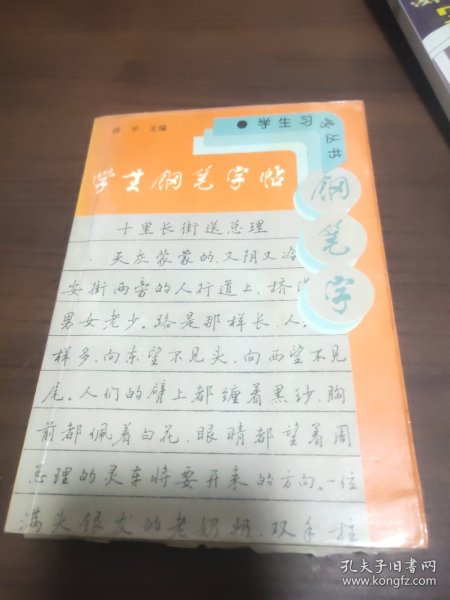 平 主编
●学生习字丛书
学生钢笔字帖
钢笔字
十里长街送总理
天灰蒙蒙的,又阴又冷
安街两旁的人行道上,挤满
男女老少。路是那样长,人
样多,向东望不见头,向西望不见
尾。人们的臂上都缠着黑纱,胸
前都佩着白花,眼睛都望着周
总理的灵车将要开来的方向。一位
满头银发的老奶奶,双手拄
孔夫子旧书网
www.kongfz.com